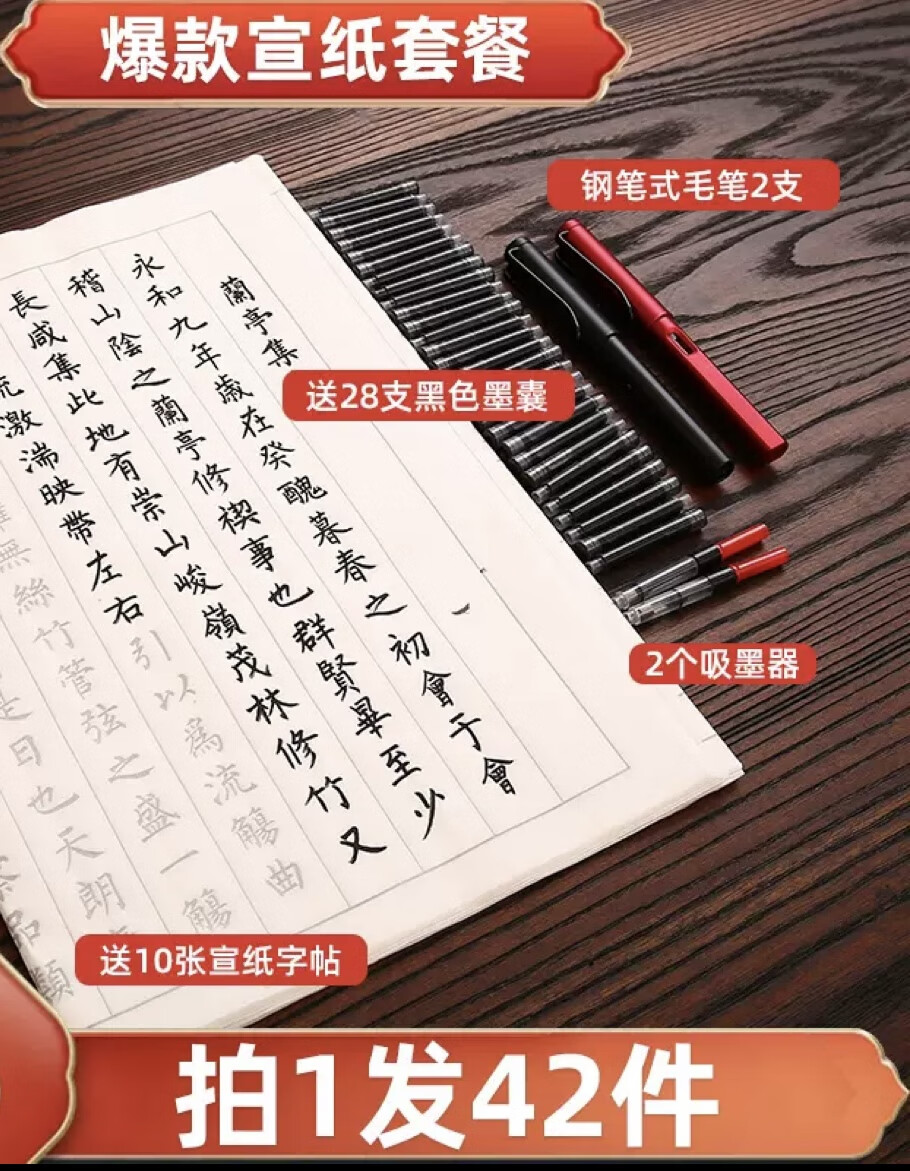 爆款宣纸套餐
钢笔式毛笔2支
送28支黑色墨囊
2个吸墨器
蘭亭集
永和九年歲在癸醜暮春之初會于會
稽山陰之蘭亭修禊事也群賢畢至少
長咸集此地有崇山峻嶺茂林修竹又
流激湍映帶左右引以為流觴曲
無絲竹管弦之盛一觴
是日也天朗
品類
送10张宣纸字帖
拍1发42件